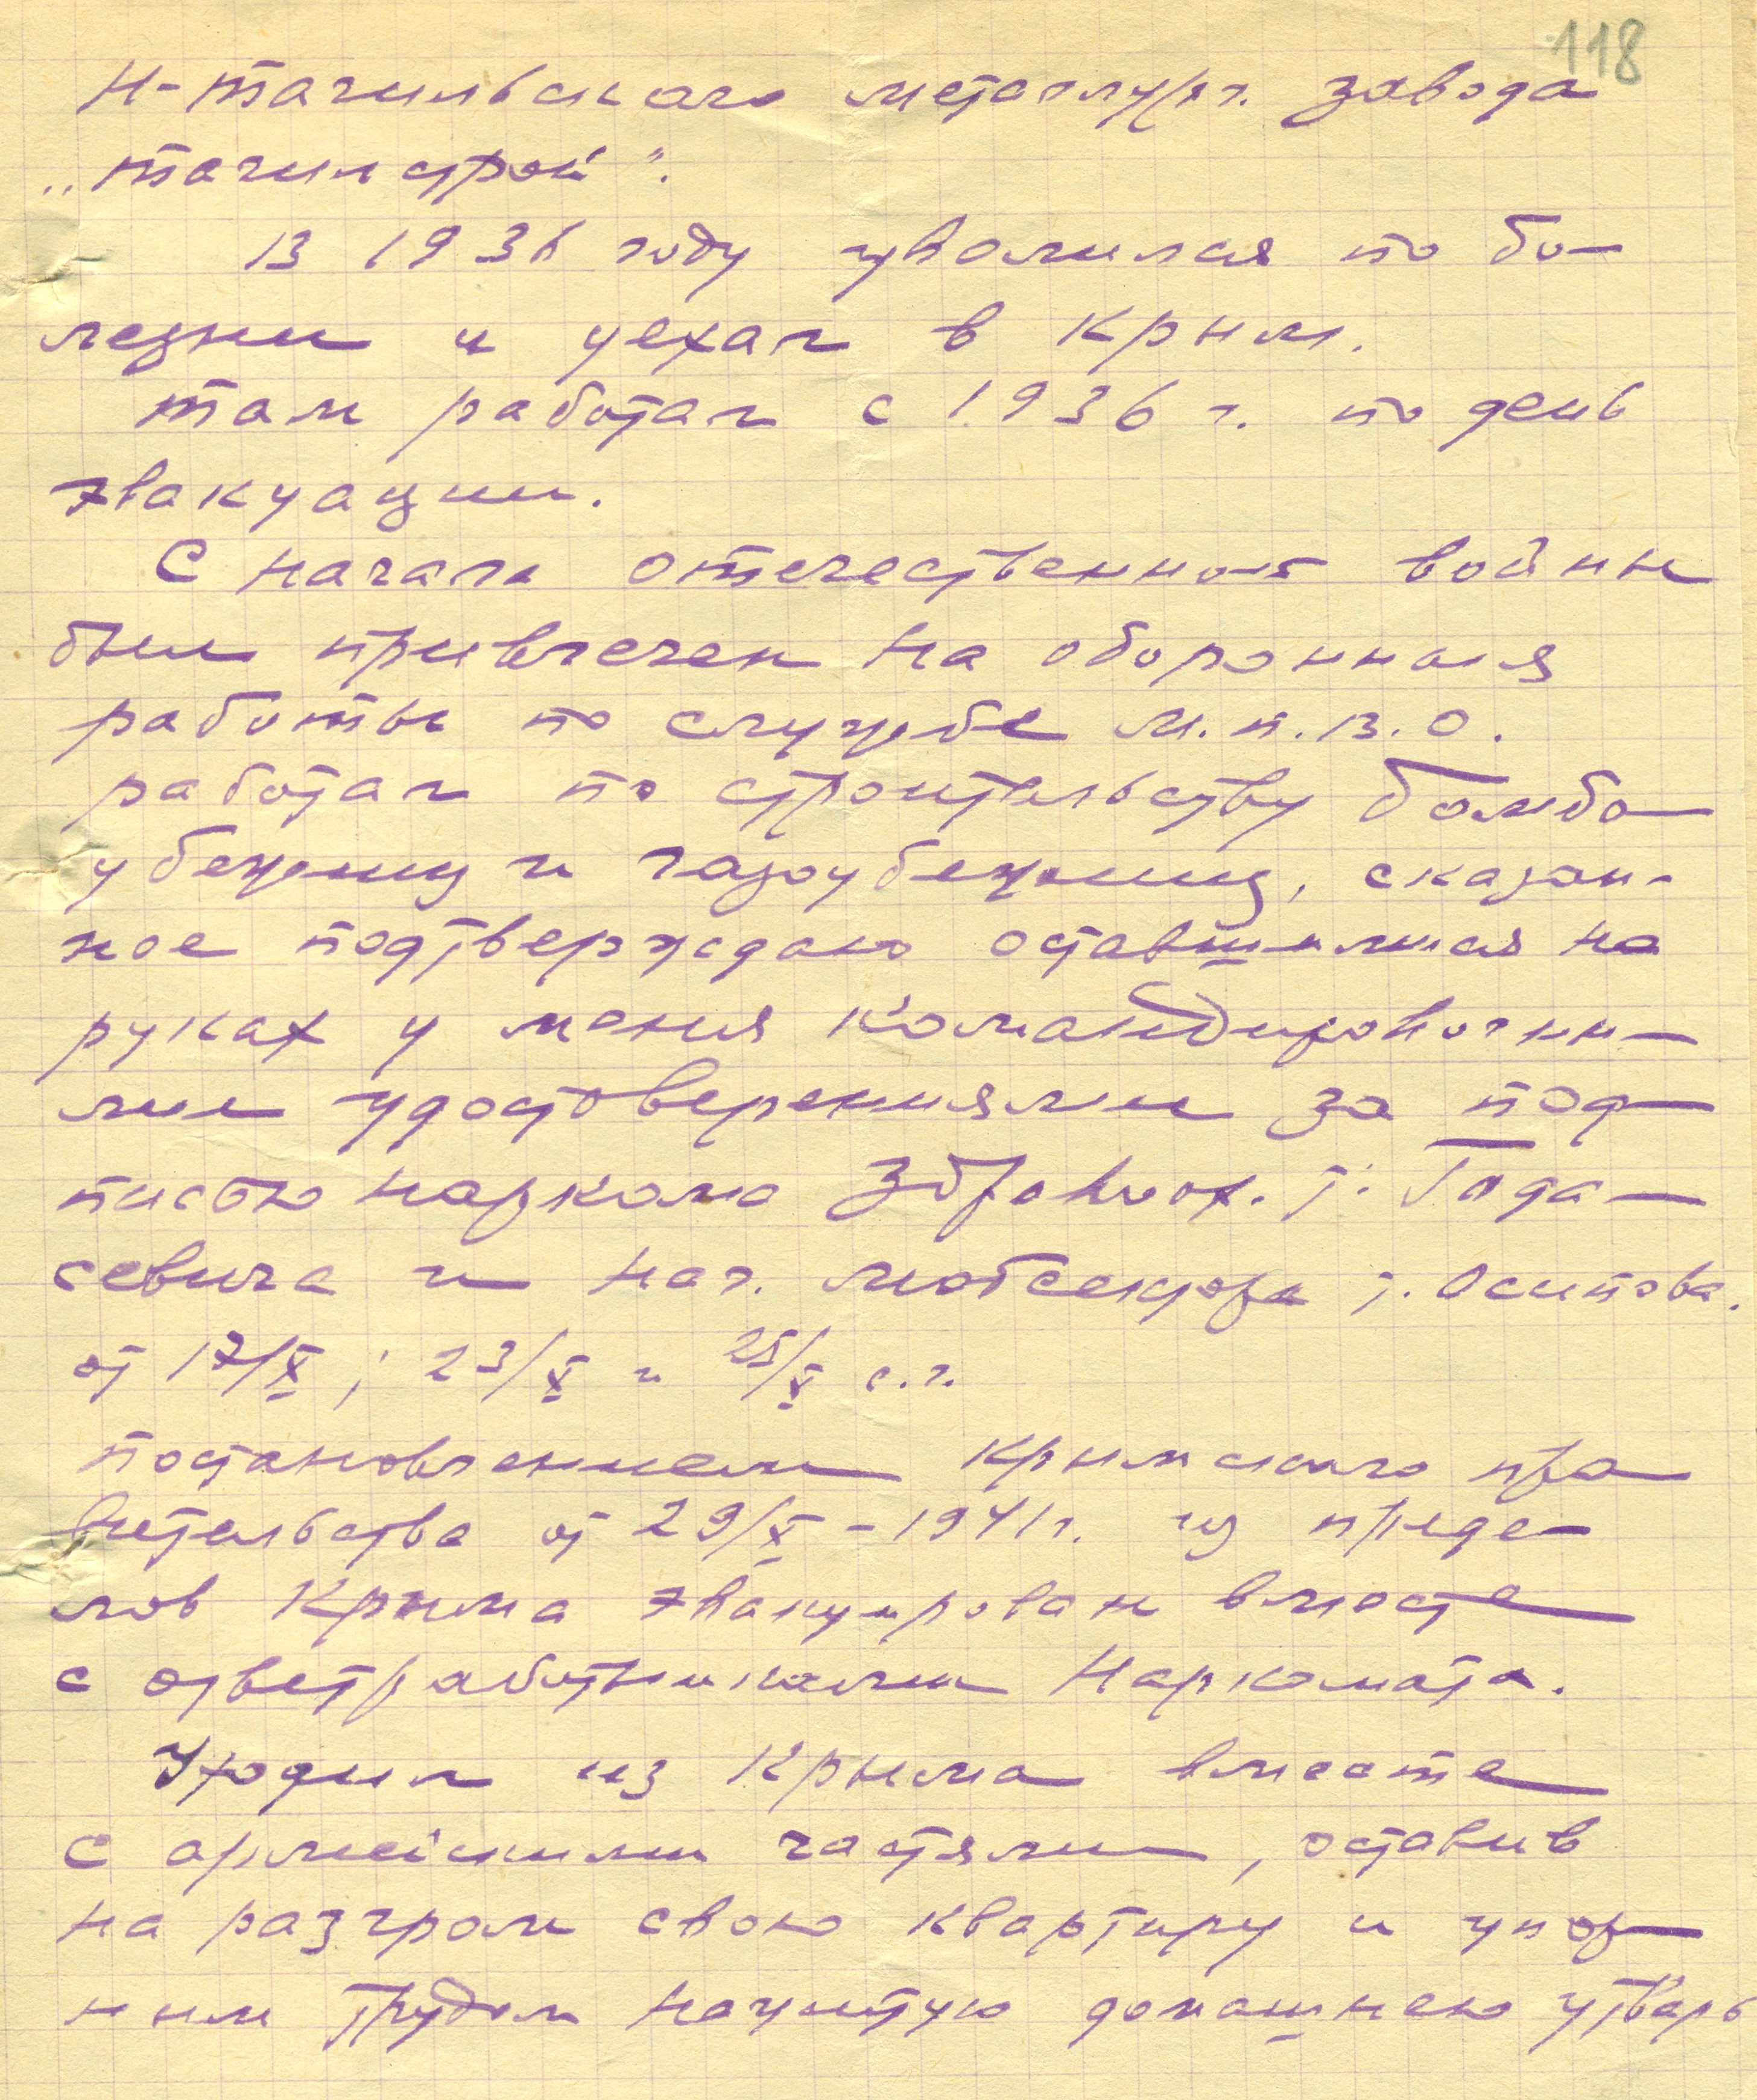 118
Н-Тагильского металлург. завода
„Тагилстрой".
В 1936 году уволился по бо-
лезни и уехал в Крым.
Там работал с 1936 г. по день
эвакуации.
С начала отечественной войны
был привлечен на оборонная
работы по службе М.П.В.О.
работал по строительству бомбо
убежищ и газоубежищ, сказан-
ное подтверждаю оставшимися на
руках у меня командировочны-
ми удостоверениями за под-
писью наркома Здравоох. т.
севича и нач. мобсектора т. Осипова.
от 17/X ; 23/X и 25/X с.г.
постановлением Крымского пра
вительства от 29/X - 1941 г. из преде-
лов Крыма эвакуирован вместе
с ответработниками Наркомата.
Уходил из Крыма вместе
с армейскими частями, оставив
на разгром свою квартиру и упор-
ным трудом нажитую домашнею утварь